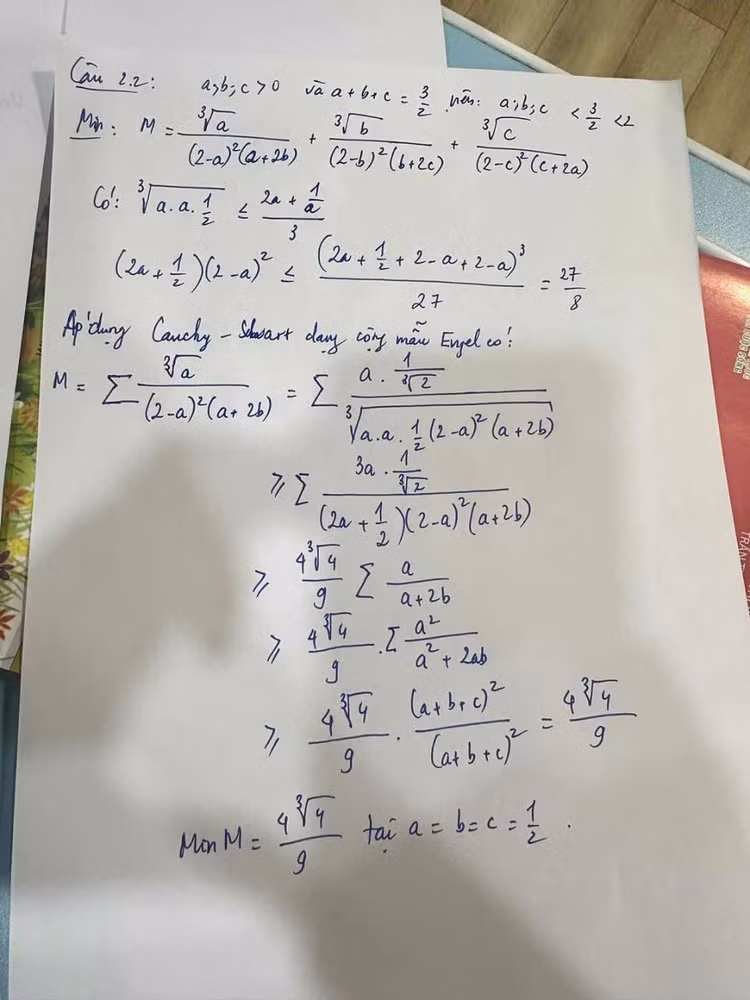 Câu 2.2: a;b;c > 0 và a + b + c = 3/2 nên: a;b;c < 3/2 < 2
Min: M = ∛a/((2-a)²(a+2b)) + ∛b/((2-b)²(b+2c)) + ∛c/((2-c)²(c+2a))
Có: ∛(a.a.1/2) ≤ (2a + 1/a)/3
(2a + 1/2)(2-a)² ≤ (2a + 1/2 + 2-a + 2-a)³/27 = 27/8
Áp dụng Cauchy – dạng cộng mẫu Engel có:
M = ∑ ∛a/((2-a)²(a+2b)) = ∑ (a . 1/∛2)/(∛(a.a.1/2) (2-a)²(a+2b))
≥ ∑ (3a . 1/∛2)/((2a + 1/2)(2-a)²(a+2b))
≥ 4∛4/9 ∑ a/(a+2b)
≥ 4∛4/9 . ∑ a²/(a² + 2ab)
≥ 4∛4/9 . (a+b+c)²/(a+b+c)² = 4∛4/9
Min M = 4∛4/9 tại a = b = c = 1/2 .